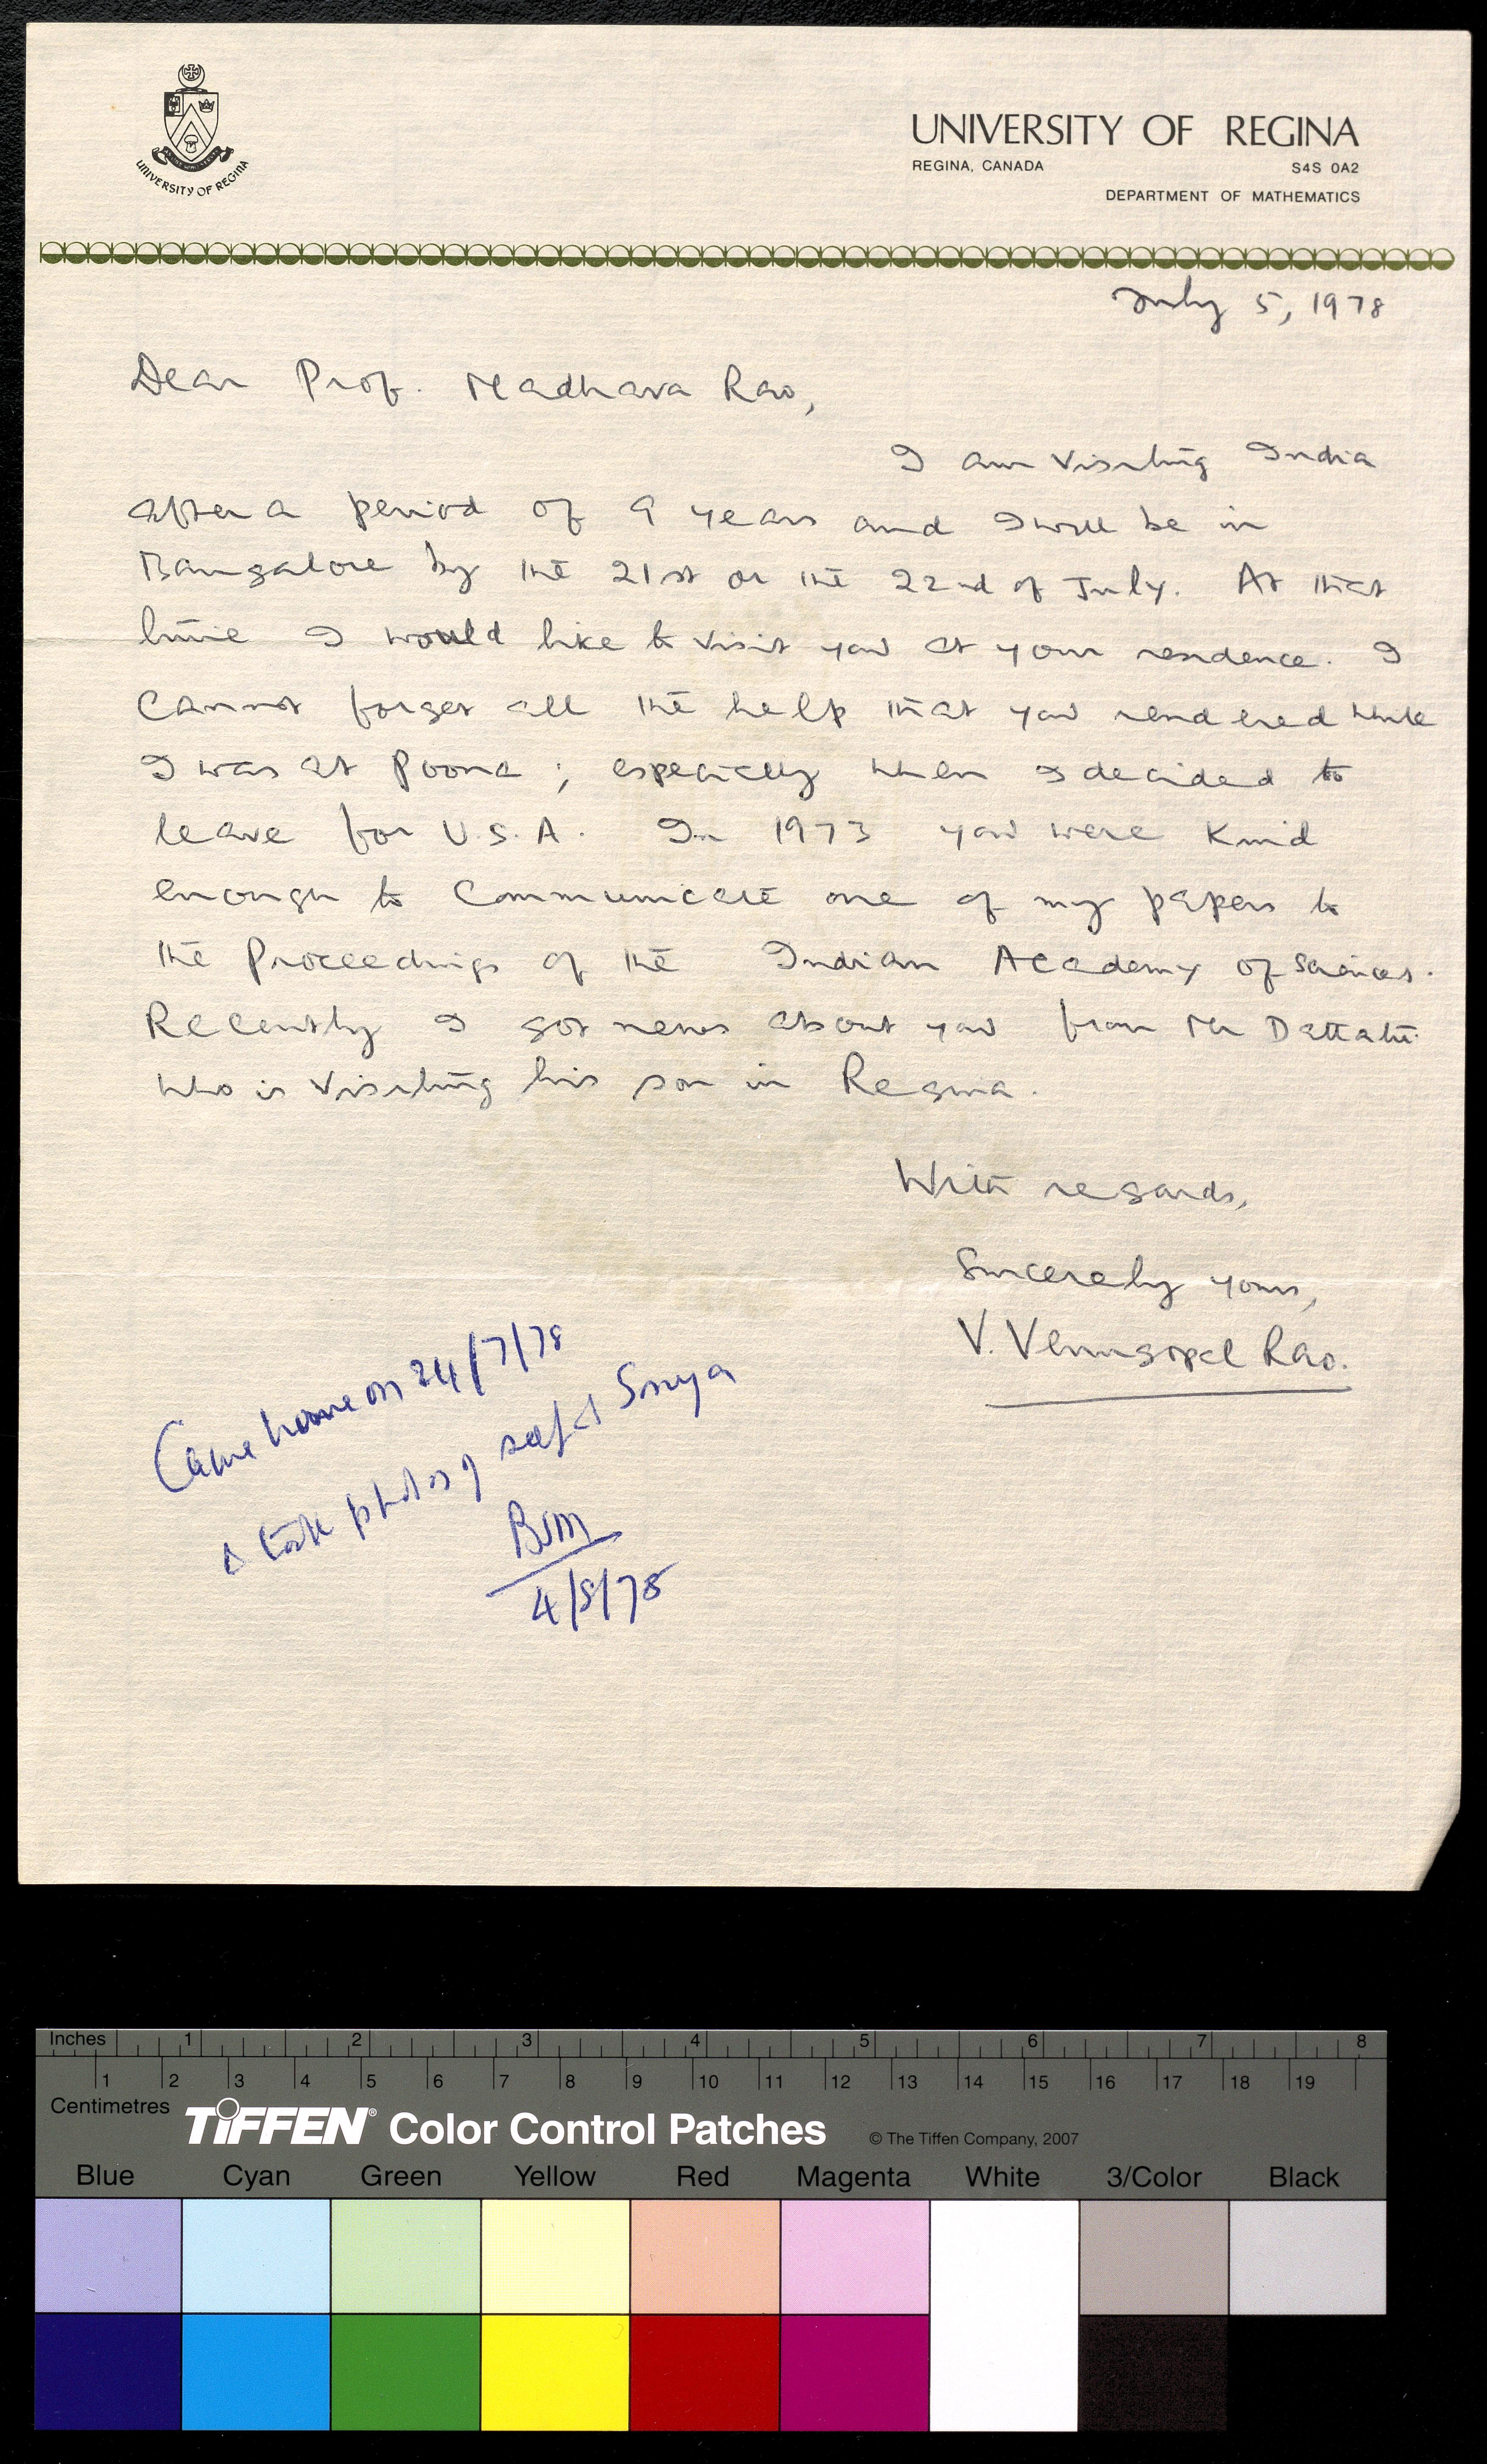 UNIVERSITY OF REGINA
UNIVERSITY OF REGINA
REGINA, CANADA S4S 0A2
DEPARTMENT OF MATHEMATICS
July 5, 1978
Dear Prof. Madhava Rao,
I am visiting India
after a period of 9 years and I will be in
Bangalore by the 21st or the 22nd of July. At that
time I would like to visit you at your residence. I
cannot forget all the help that you rendered while
I was at Poona ; especially when I decided to
leave for U.S.A. In 1973 you were kind
enough to communicate one of my papers to
the Proceedings of the Indian Academy of Sciences.
Recently I got news about you from Mr Dattatri
who is visiting his son in Regina.
With regards,
Sincerely yours,
V. Venugopal Rao.
Came home on 24/7/78
& took photos of self & Surya
BSM
4/8/78
Inches 1 2 3 4 5 6 7 8
1 2 3 4 5 6 7 8 9 10 11 12 13 14 15 16 17 18 19
Centimetres
TIFFEN® Color Control Patches © The Tiffen Company, 2007
Blue Cyan Green Yellow Red Magenta White 3/Color Black